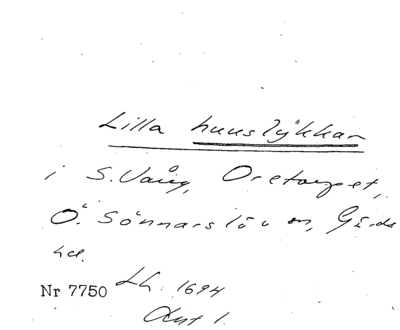 Lilla huuslÿkkan
i S. Vång, Oretorpet,
Ö. Sönnarslöv sn, Gärds
hd.
Nr 7750 Lh. 1694
Ant 1.